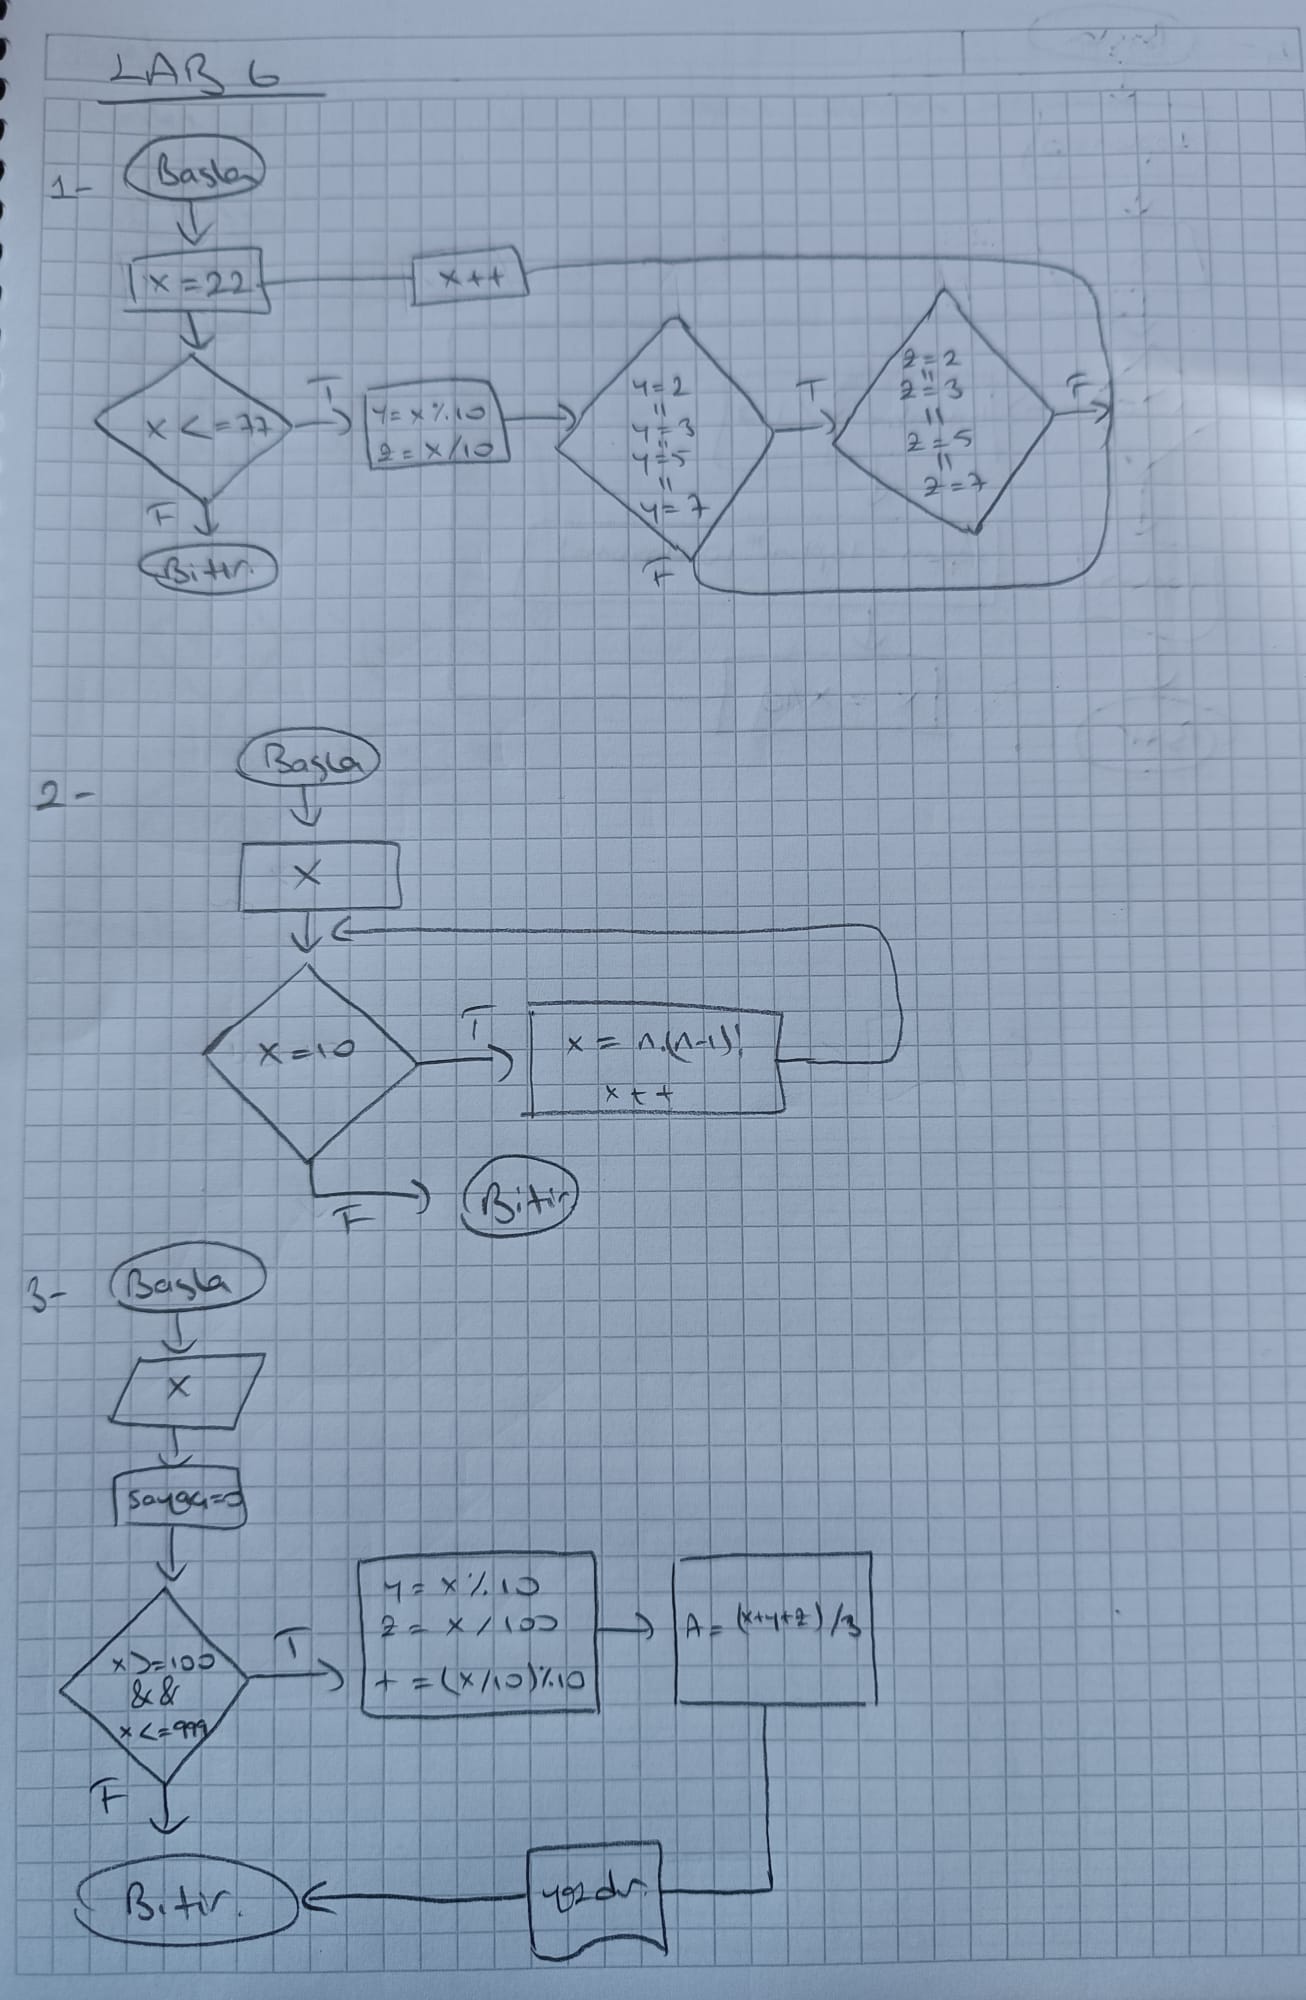 LAB 6
1-
Başla
x=22
x++
x <=77
T
y=x%10
z=x/10
y=2
||
y=3
||
y=5
||
y=7
T
z=2
||
z=3
||
z=5
||
z=7
F
F
F
Bitir.
2-
Başla
x
x=10
T
x = n.(n-1)!
x++
F
Bitir
3-
Başla
x
x>=100
&&
x<=999
T
y=x%10
z=x/100
t=(x/10)%10
A=(x+y+z)/3
F
Bitir.
yazdır.